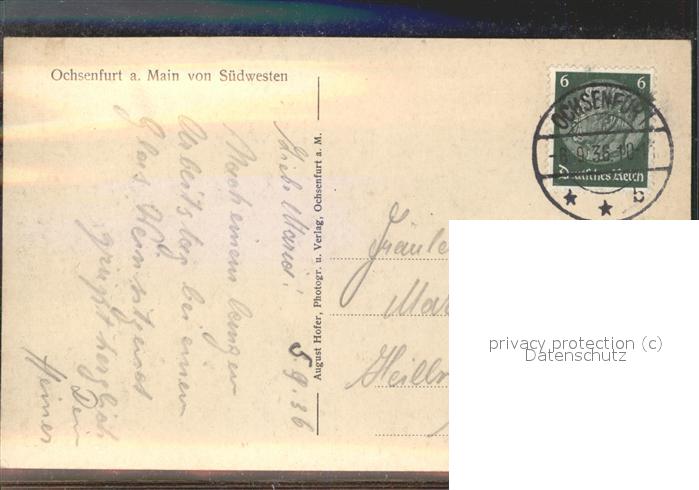 Ochsenfurt a. Main von Südwesten
6 6
OCHSENFURT
9.36-10
Deutsches Reich
b
August Hofer, Photogr. u. Verlag, Ochsenfurt a. M.
5.9.36
Liebe Maria!
Nach einem langen
Arbeitstag bei einem
Glas Wein sitzend
grüsst herzlich
Dein
Heiner
Fräule
Mar
Heilbr
privacy protection (c)
Datenschutz